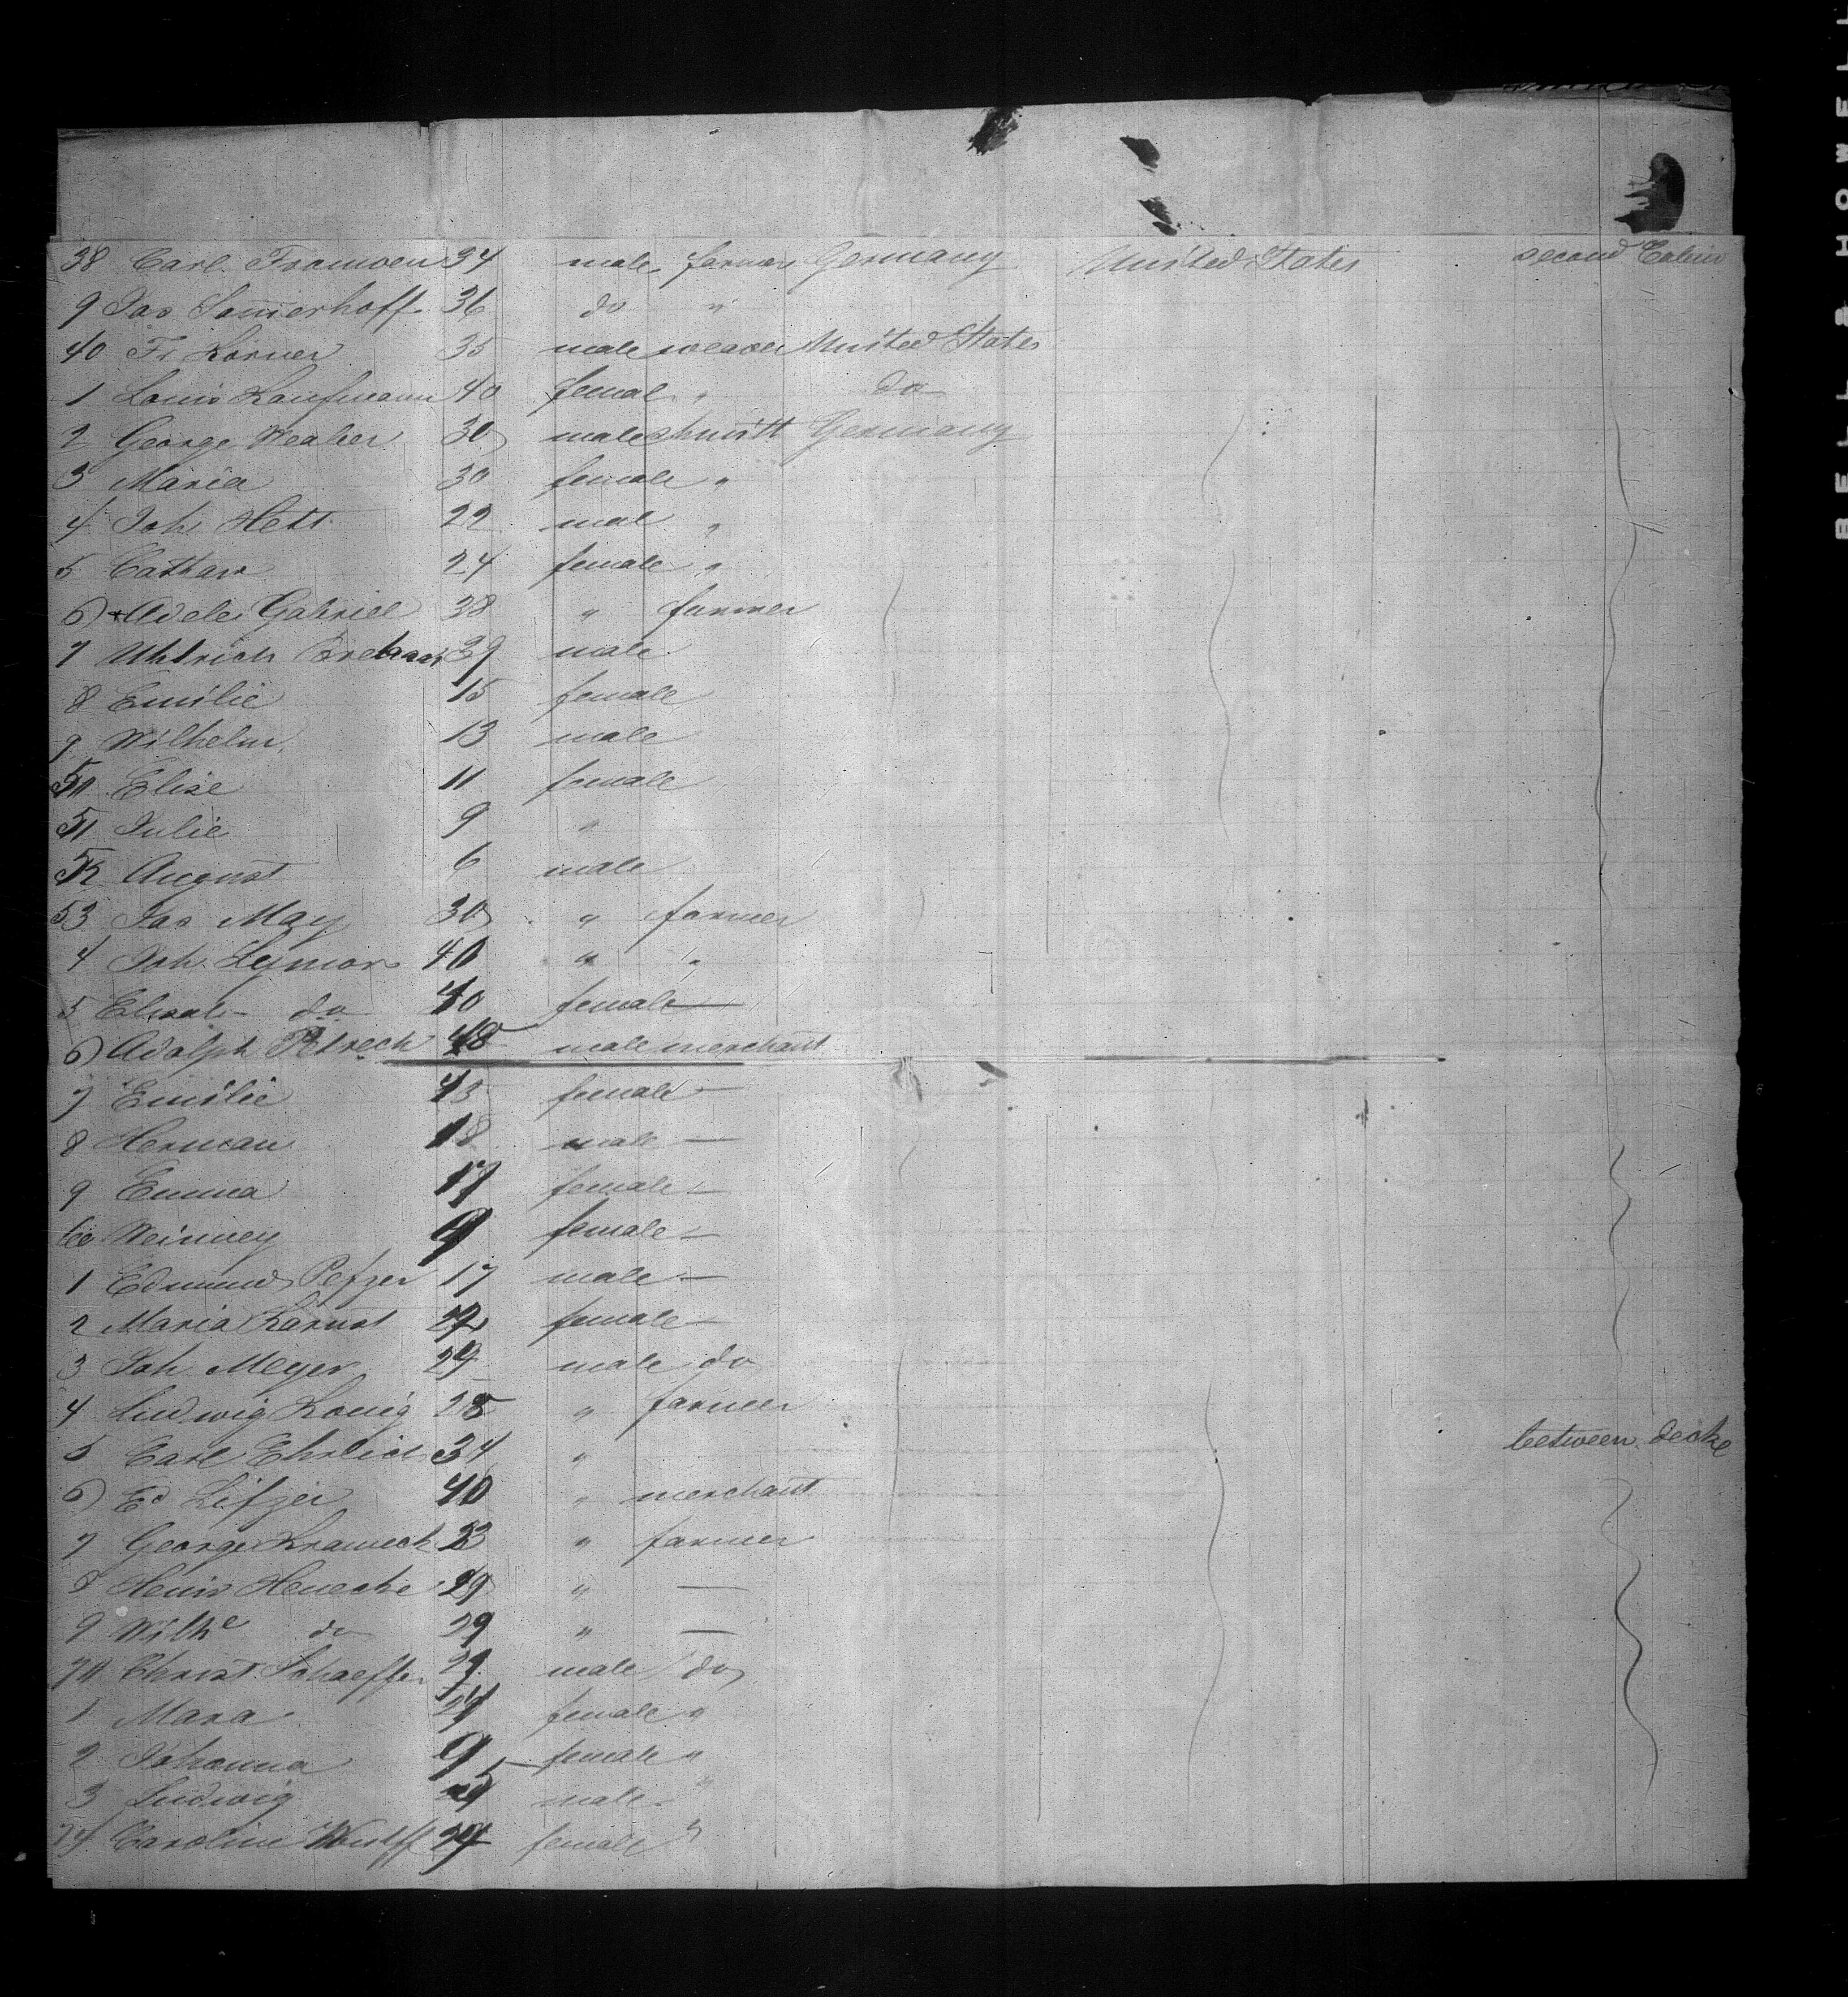 38 Carl Framoen 34 male farmer Germany United States second Cabin
9 Jas Samerhoff 36 do "
40 Fr Körner 35 male weaver United States
1 Louis Kaufmann 40 female " do
2 George Weaher 30 male shmitt Germany
3 Maria 30 female "
4 Joh Hett 29 mal "
5 Cathar 24 female "
6 Adele Gabriel 38 " farmer
7 Uhlrich 39 male
8 Emilie 15 female
9 Wilhelm 13 male
50 Elise 11 female
51 Julie 9 "
52 August 6 male
53 Jas May 30 " farmer
4 Joh. Leymor 40 " "
5 Elisab do 40 female —
6 Adolph Petrech 48 male merchant
7 Emilie 43 female —
8 Herman 18 male —
9 Emma 17 female —
60 Weinney 9 female —
1 Edmund Pefzer 17 male —
2 Maria Karnst female —
3 Joh Meyer 29 male do
4 Ludwig Konig 28 " farmer
5 Carl Ehrlich 34 " between decke
6 Ed Lifzer 40 " merchant
7 George Kramech 23 " farmer
8 Heinr Henecke 29 " —
9 Wilhe do 29 " —
70 Christ. Schaeffer 29 male do
1 Mara 24 female "
2 Johanna 9 female "
3 Ludwig male "
74 Caroline Wulff 24 female "
BELL & HOWELL